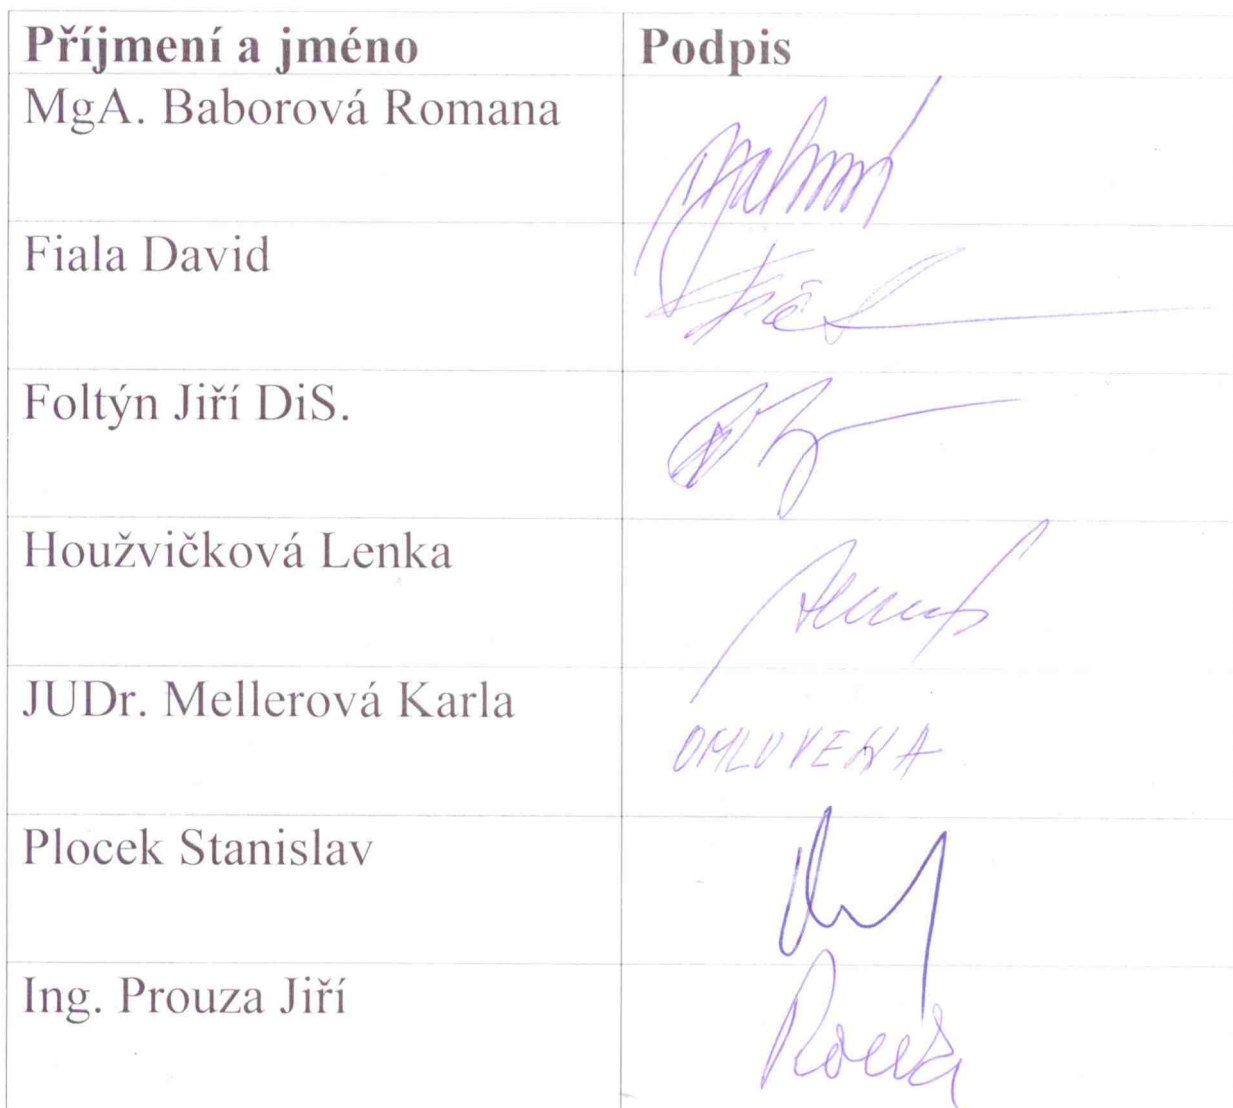 Příjmení a jméno Podpis
MgA. Baborová Romana
Fiala David
Foltýn Jiří DiS.
Houžvičková Lenka
JUDr. Mellerová Karla OMLUVENA
Plocek Stanislav
Ing. Prouza Jiří